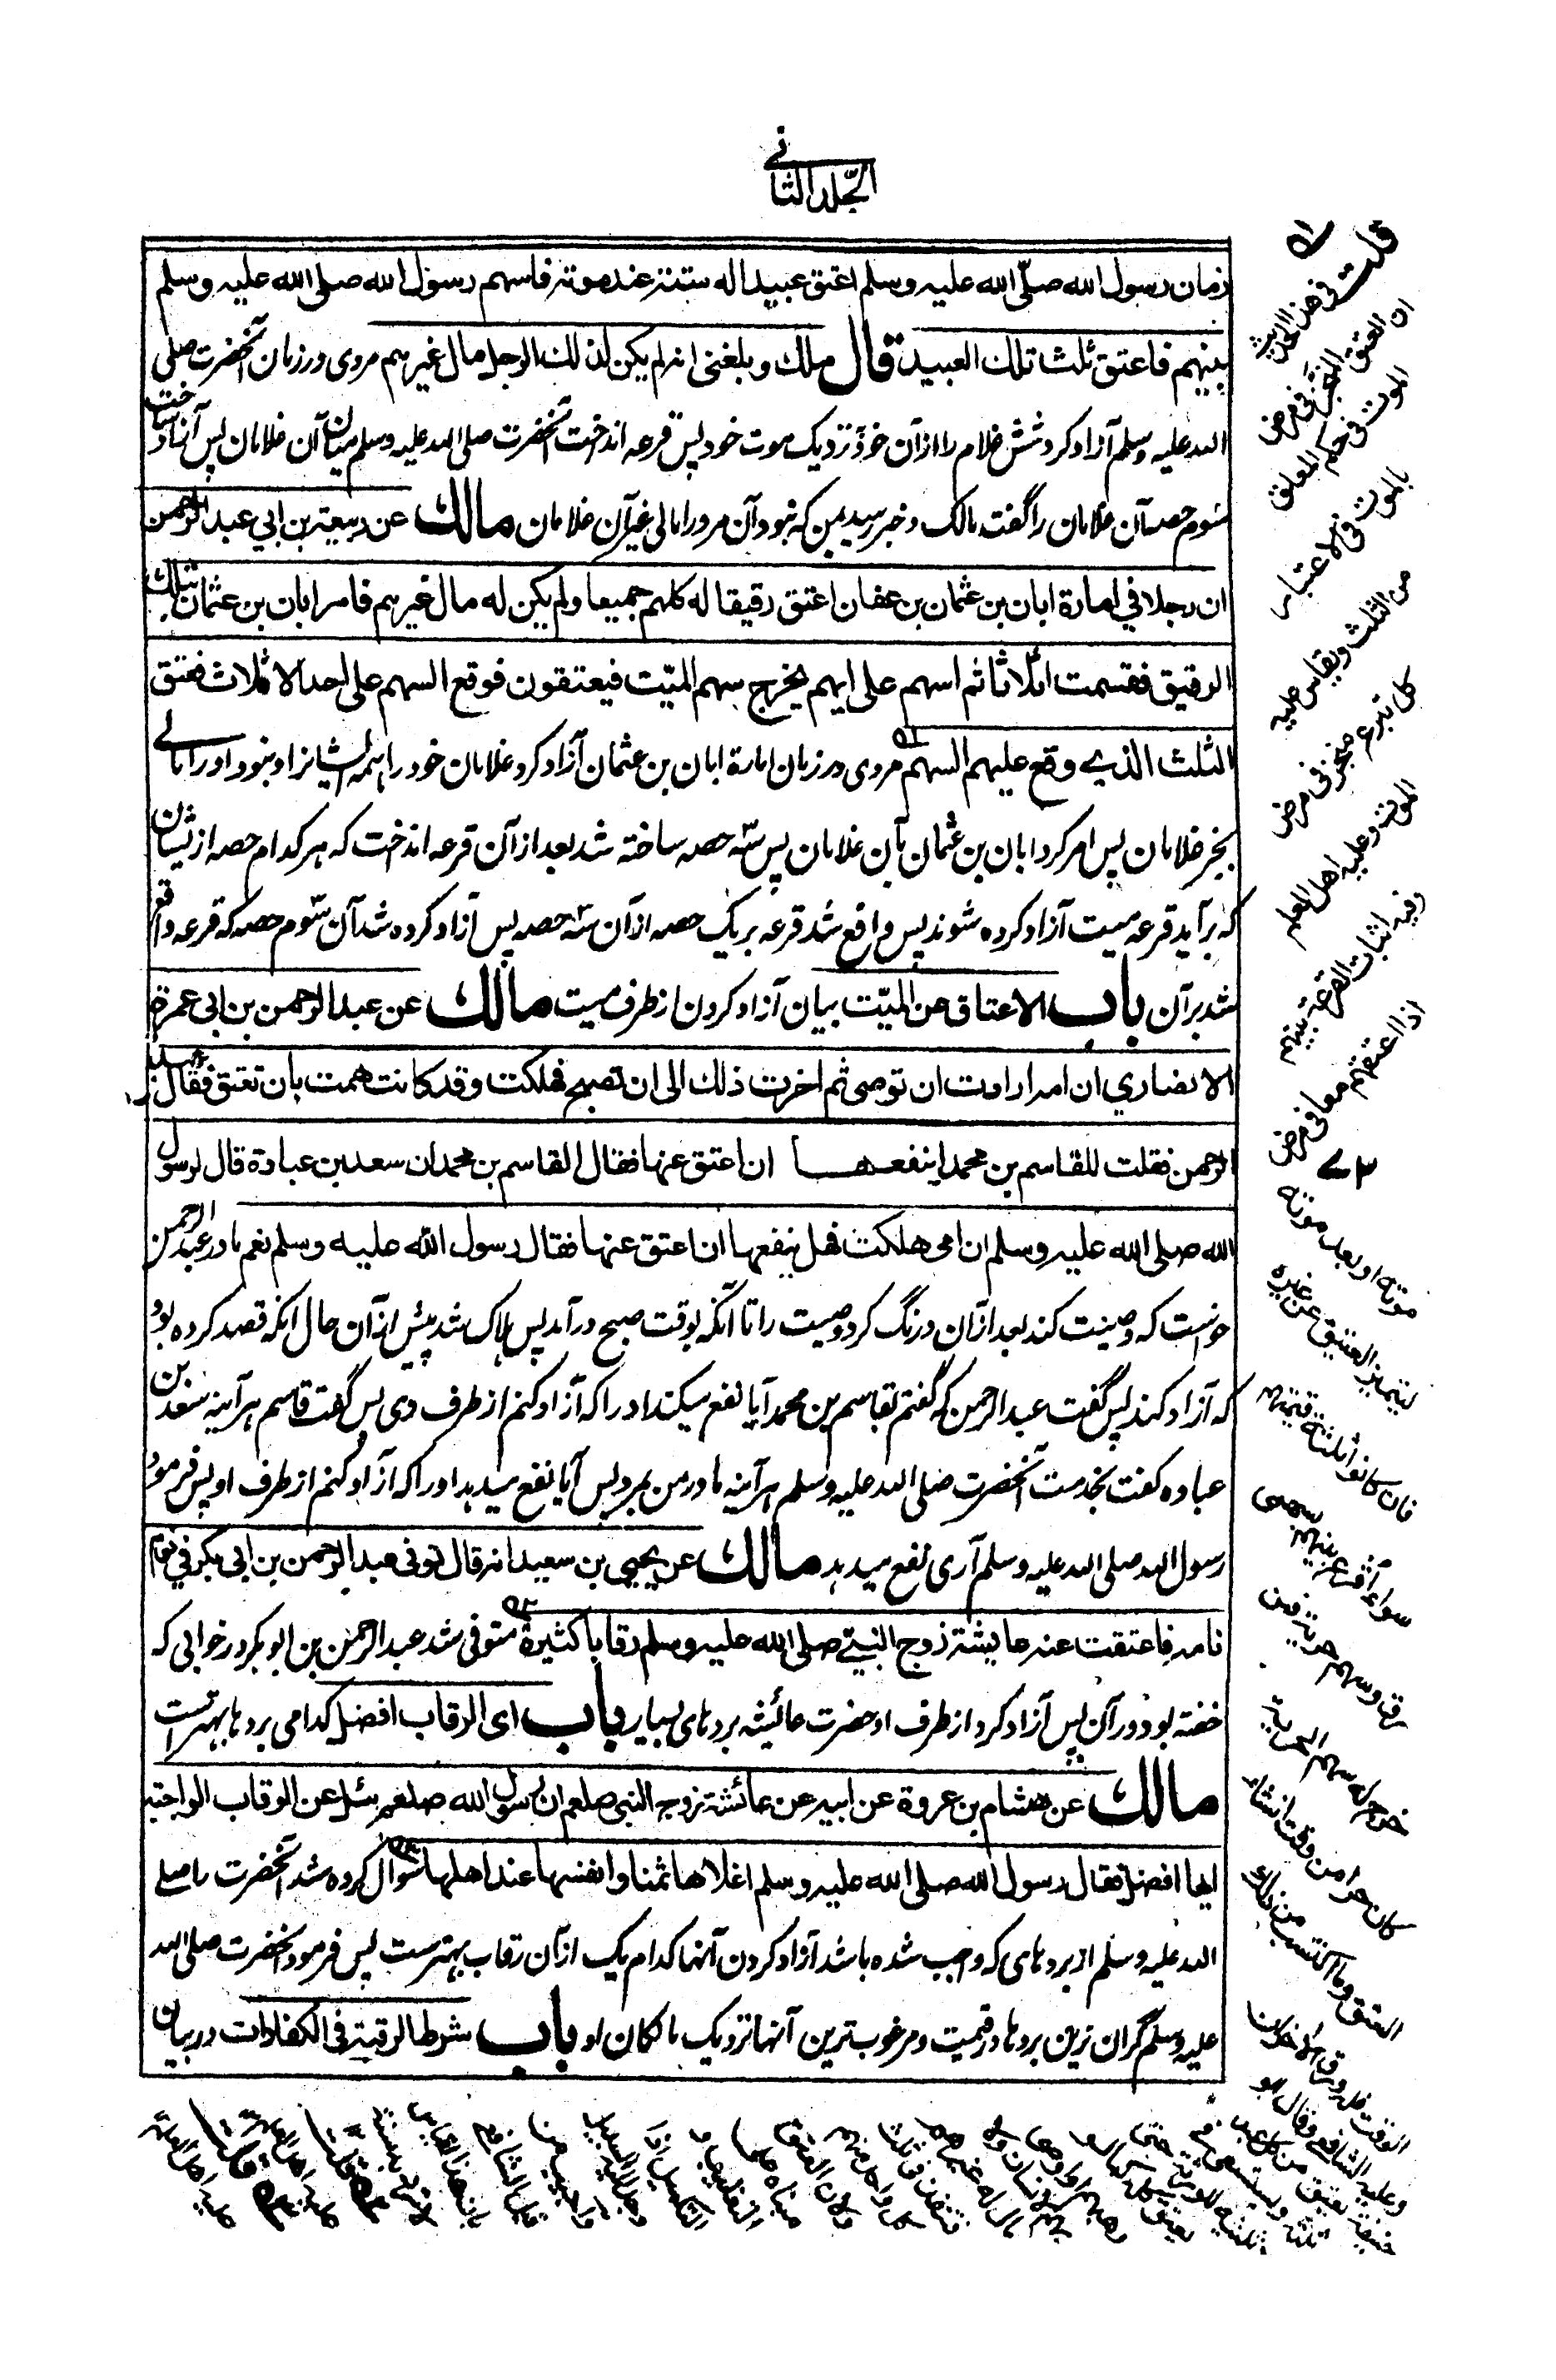 المجلد الثاني
زمان رسول الله صلى الله عليه وسلم اعتق عبيدا له ستة عند موته فاسهم رسول الله صلى الله عليه وسلم
بينهم فاعتق ثلث تلك العبيد قال مالك وبلغني انه لم يكن لذلك الرجل مال غيرهم مروی در زمان آنحضرت صلی
الله علیه وسلم آزاد کرد شش غلام را از آن خود نزدیک موت خود پس قرعه انداخت آنحضرت صلی الله علیه وسلم میان آن غلامان پس آزاد ساخت
سوم حصه آن غلامان را گفت مالک و خبر رسید بمن که نبود آن مرد را مالی غیر آن غلامان مالك عن ربيعة بن ابي عبد الرحمن
ان رجلا في امارة ابان بن عثمان بن عفان اعتق رقيقا له كلهم جميعا ولم يكن له مال غيرهم فامر ابان بن عثمان بتلك
الرقيق فقسمت اثلاثا ثم اسهم على ايهم يخرج سهم الميت فيعتقون فوقع السهم على احد الاثلاث فعتق
الثلث الذي وقع عليهم السهم مروی در زمان امارة ابان بن عثمان آزاد کرد غلامان خود را همه ایشانرا و نبود او را مالی
بجز غلامان پس امر کرد ابان بن عثمان بآن غلامان پس سه حصه ساخته شد بعد از آن قرعه انداخت که هر کدام حصه از ایشان
که برآید قرعه میت آزاد کرده شوند پس واقع شد قرعه بر یک حصه از آن سه حصه پس آزاد کرده شد آن سوم حصه که قرعه واقع
شد بر آن باب الاعتاق عن الميت بیان آزاد کردن از طرف میت مالك عن عبد الرحمن بن ابي عمرة
الانصاري ان امه ارادت ان توصي ثم اخرت ذلك الى ان تصبح فهلكت وقد كانت همت بان تعتق فقال عبد
الرحمن فقلت للقاسم بن محمد اينفعها ان اعتق عنها فقال القاسم بن محمد ان سعد بن عبادة قال لرسول
الله صلى الله عليه وسلم ان امي هلكت فهل ينفعها ان اعتق عنها فقال رسول الله صلى الله عليه وسلم نعم مادر عبد الرحمن
خواست که وصیت کند بعد از آن درنگ کرد وصیت را تا آنکه بوقت صبح درآید پس هلاک شد پیش از آن حال آنکه قصد کرده بود
که آزاد کند پس گفت عبد الرحمن که گفتم بقاسم بن محمد آیا نفع میکند او را که آزاد کنم از طرف وی پس گفت قاسم هر آینه سعد بن
عباده گفت بخدمت آنحضرت صلی الله علیه وسلم هر آینه مادر من بمرد پس آیا نفع میدهد او را که آزاد کنم از طرف او پس فرمود
رسول الله صلی الله علیه وسلم آری نفع میدهد مالك عن يحيى بن سعيد انه قال توفي عبد الرحمن بن ابي بكر في نوم
نامه فاعتقت عنه عايشة زوج النبي صلى الله عليه وسلم رقابا كثيرة متوفی شد عبد الرحمن بن ابو بکر در خوابی که
خفته بود در آن پس آزاد کرد از طرف او حضرت عائشه بردهای بسیار باب اي الرقاب افضل کدامی بردها بهتر است
مالك عن هشام بن عروة عن ابيه عن عائشة زوج النبي صلعم ان رسول الله صلعم سئل عن الرقاب الواجبة
ايها افضل فقال رسول الله صلى الله عليه وسلم اغلاها ثمنا وانفسها عند اهلها سوال کرده شد آنحضرت را صلی
الله علیه وسلم از بردهای که واجب شده باشد آزاد کردن آنها کدام یک از آن رقاب بهتر ست پس فرمود آنحضرت صلی الله
علیه وسلم گران ترین بردها در قیمت و مرغوب ترین آنها نزدیک مالکان او باب شرط الرقبة في الكفارات در بیان
قلت في هذا الحديث
ان العتق المنجز في مرض
الموت في حكم المعلق
بالموت في الاعتبار
من الثلث ويقاس عليه
كل تبرع منجز في مرض
الموت وعليه اهل العلم
وفيه اثبات القرعة بينهم
اذا اعتقهم معا في مرض
موته او بعد موته
ليتميز العتيق عن غيره
فان كانوا ثلثة قيمتهم
سواء اقرع بينهم بسهمي
رق وسهم حرية فمن
خرج له سهم الحرية
كان حرا من وقت انشاء
العتق وما اكتسب من ذلك
الوقت فله ورق الاخران
وعليه الشافعي وقال ابو
حنيفة يعتق من كل عبد